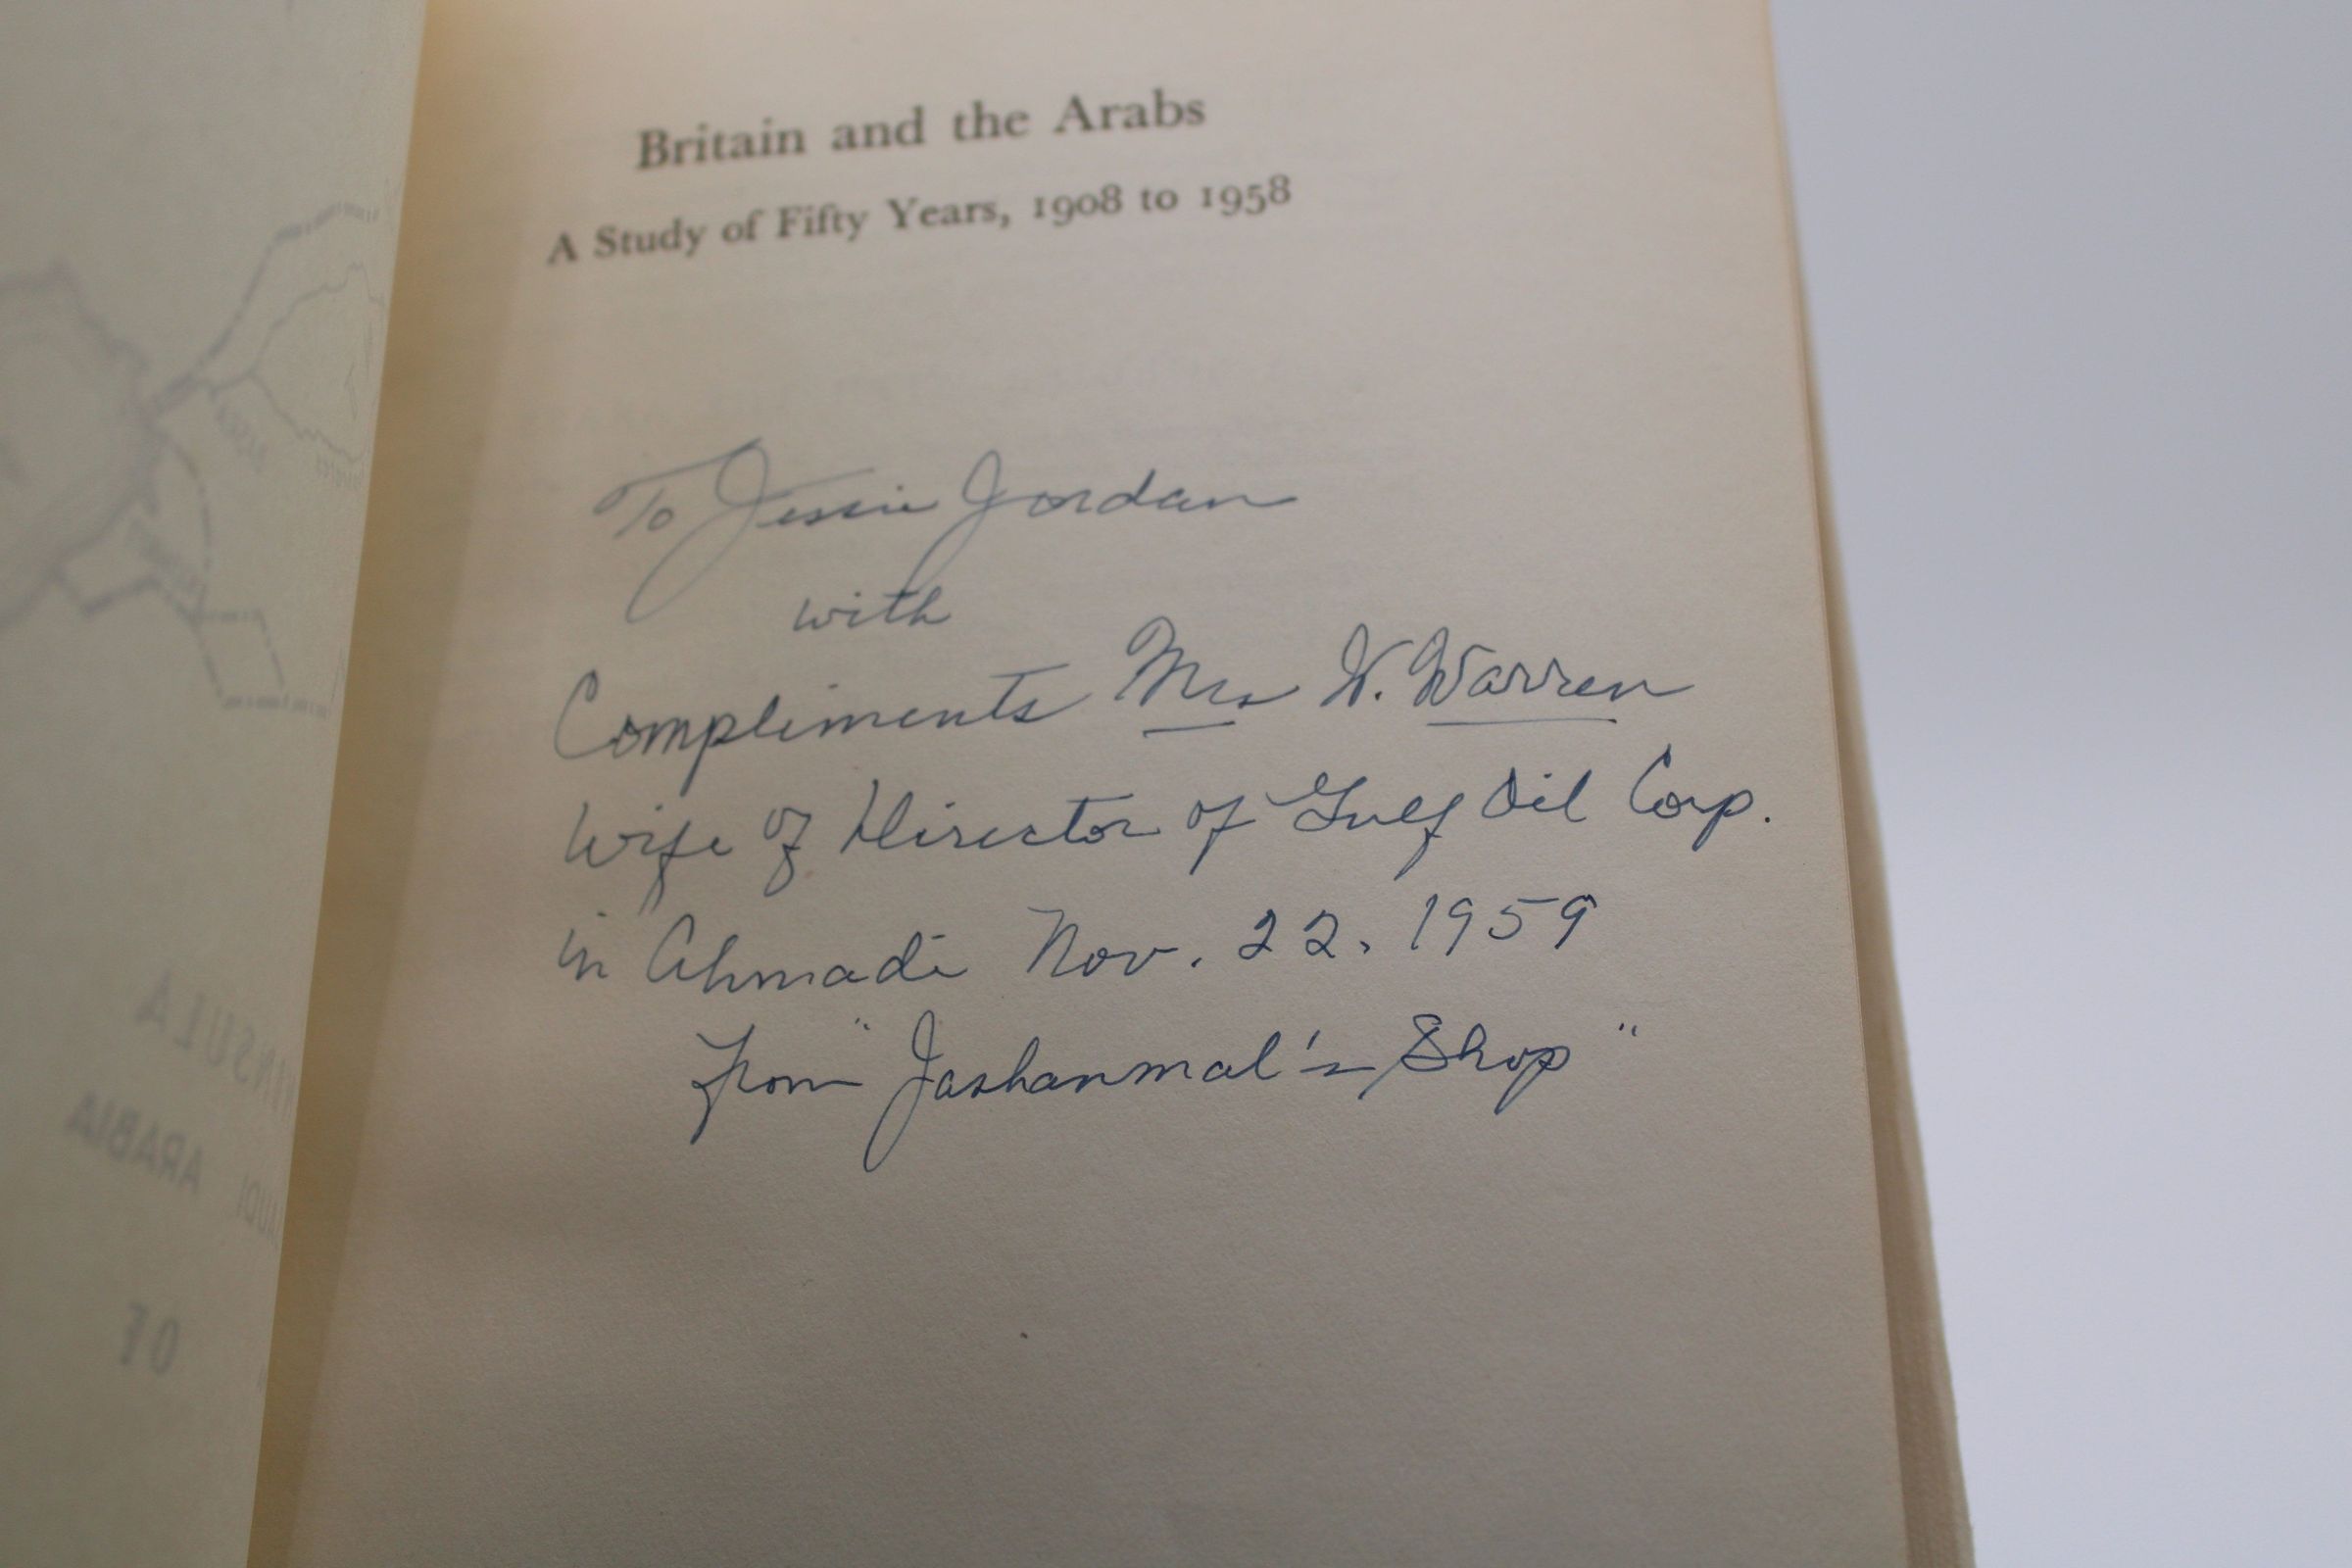 Britain and the Arabs
A Study of Fifty Years, 1908 to 1958
To Jessie Jordan
with
Compliments Mrs W. Warren
Wife of Director of Gulf Oil Corp.
in Ahmadi Nov. 22, 1959
from "Jashanmal's Shop"
INSULA
ARABIA
AUDI
OF